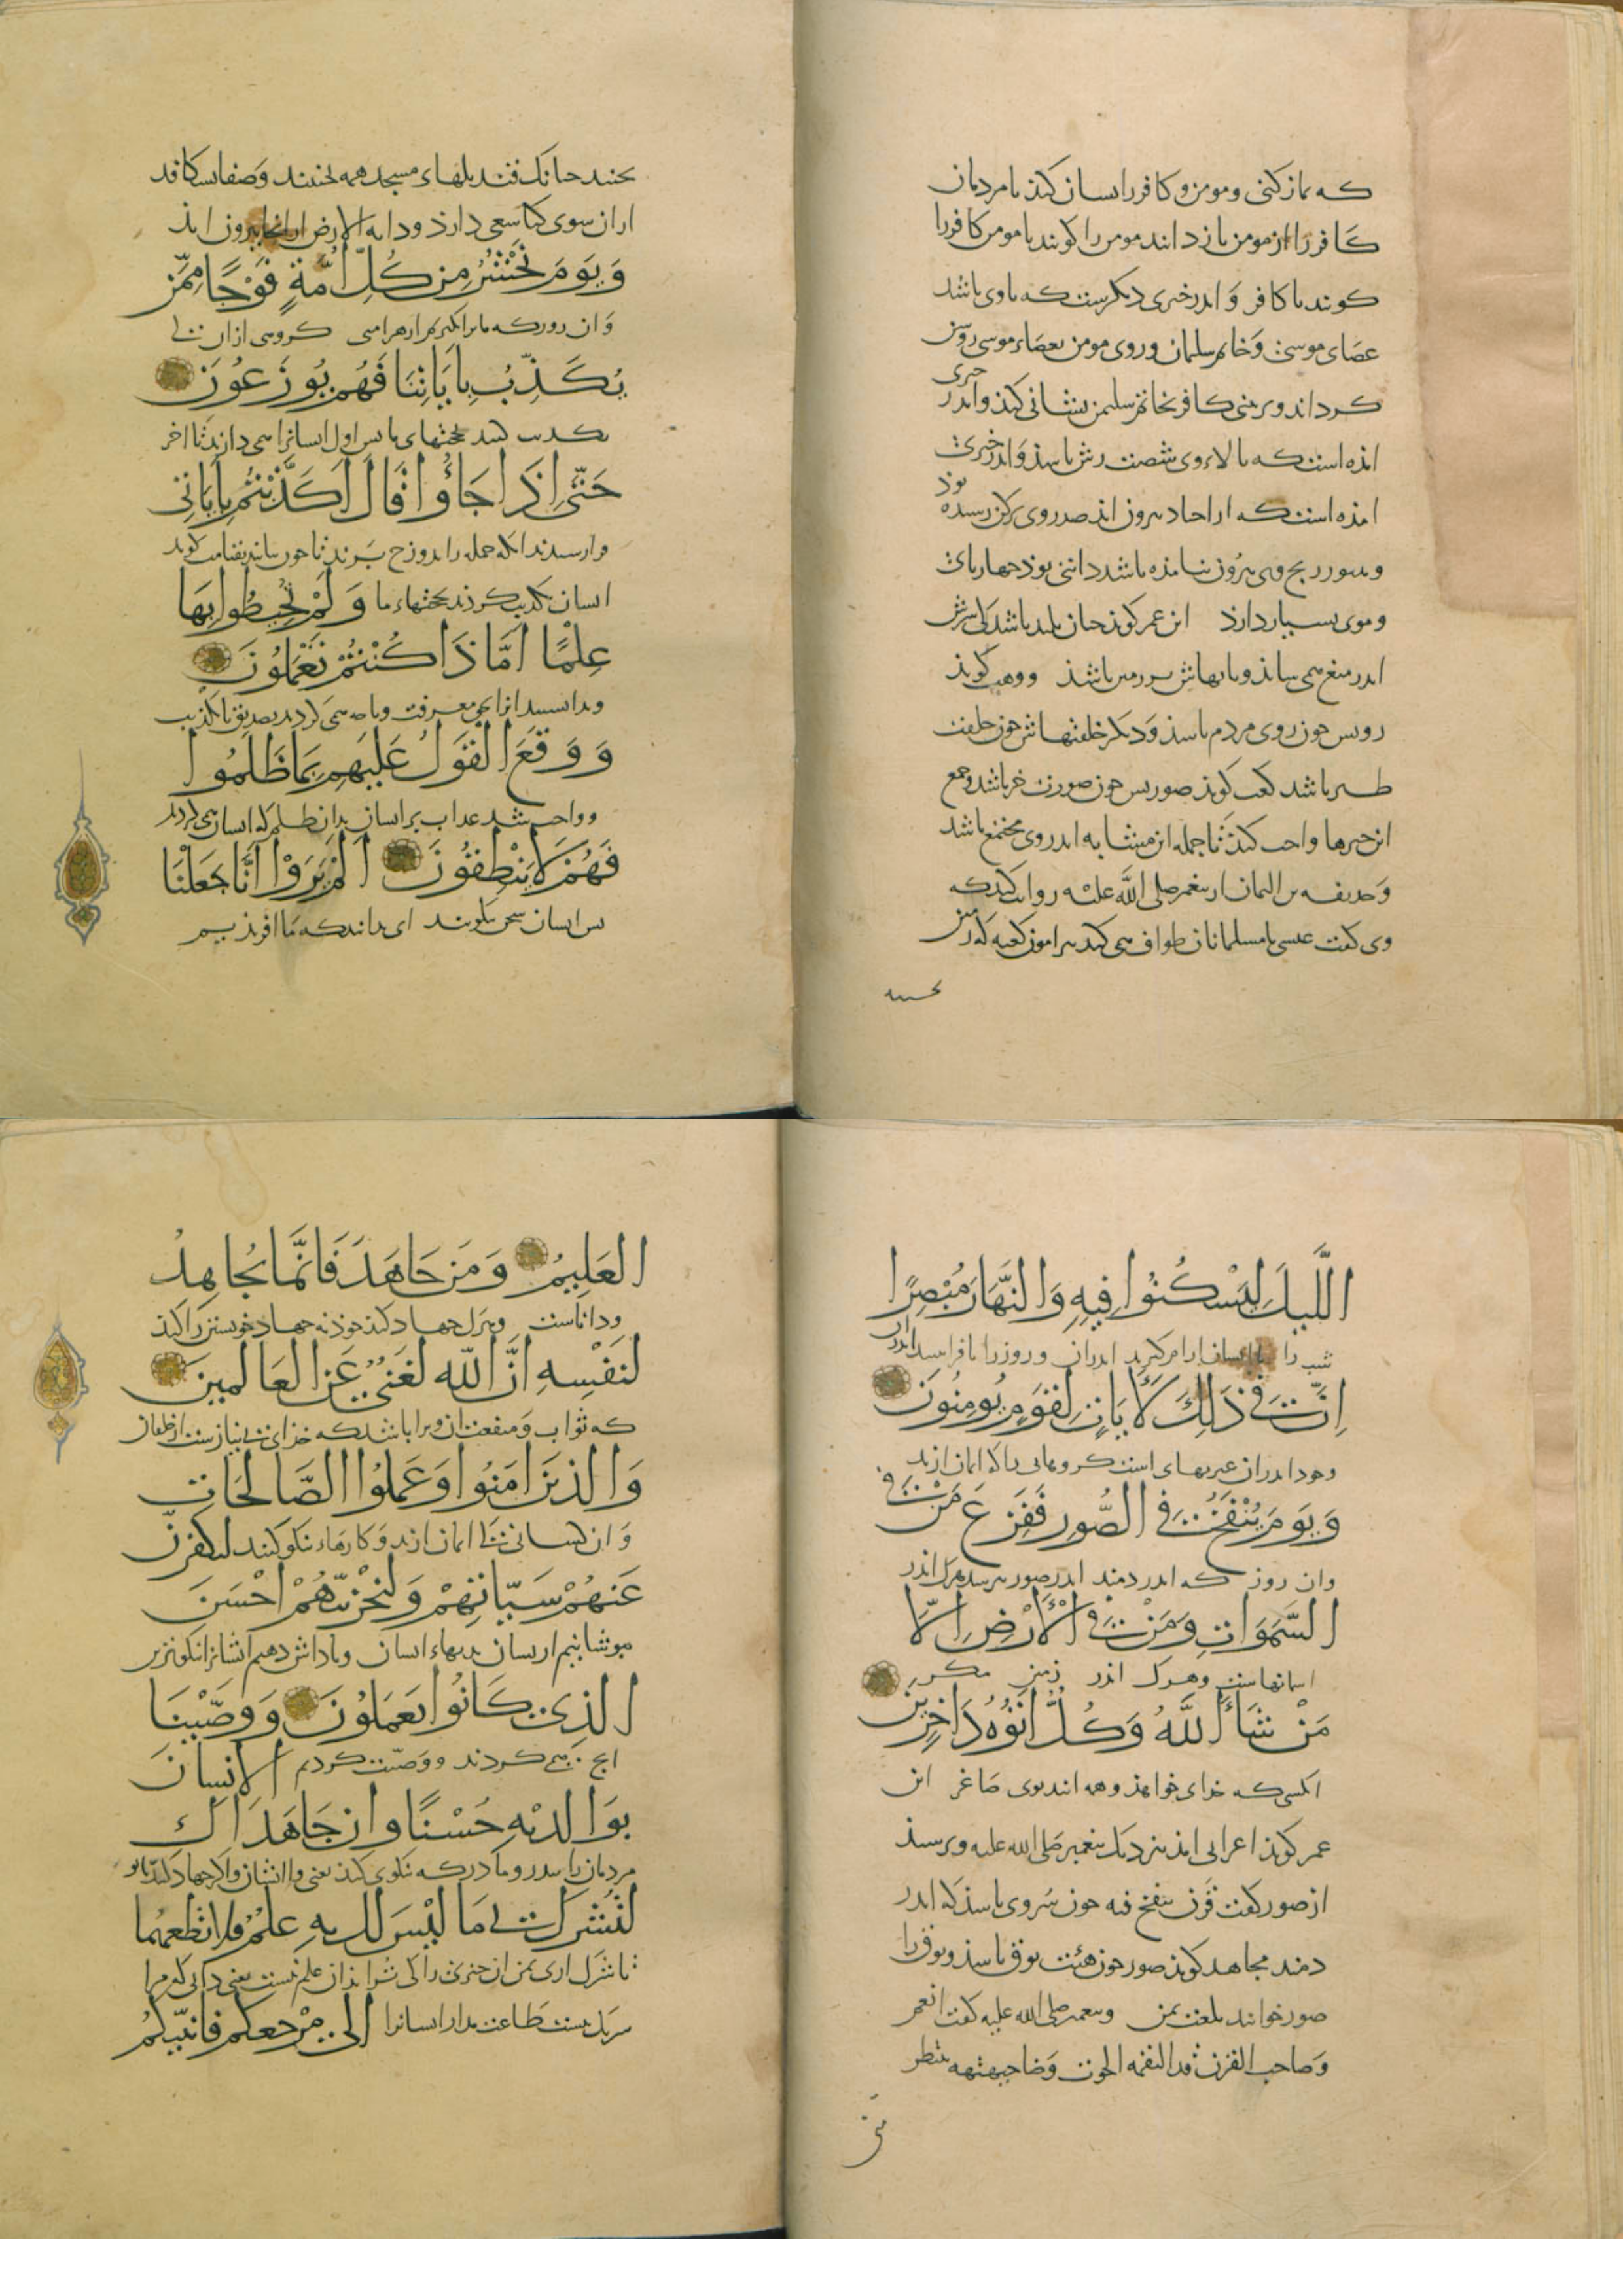 که نماز کنی و مومن و کافر را نسان کند تا مردمان
کافر را از مومن باز دانند مومن را کویند یا مومن کافر را
کویند یا کافر و اندر خبری دیکرست که با وی باشد
عصای موسی و خاتم سلیمان و روی مومن بعصاء موسی روشن
کرداند و بر بینی کافر بخاتم سلیمن نشانی کند و اندر خبری
امذه است که بالاء وی شصت رش باشذ و اندر خبری
امذه است که از اجیاد بیرون اید صدر وی برکن رسیده بوذ
و هنوز بیرون نیامذه باشد دانی بوذ چهارپای
و موی بسیار دارذ ابن عمر کوید چنان بلند باشد کی سرش
اندر میغ همی ساذ و پایهاش بر زمین باشذ و وهب کوید
رویش چون روی مردم باشذ و دیکر خلقتهاش چون خلقت
طیر باشد کعب کوید صورتش چون صورت خر باشد و جمع
این خبرها واجب کند تا جمله این مشابه اندر وی مجتمع باشد
و حذیفه بن الیمان از پیغمبر صلی الله علیه روایت کند که
وی کفت عیسی با مسلمانان طواف همی کند پیرامون کعبه که زمین
بجنبد
بجنبد چنانک قندیلهاء مسجد همه بجنبند و صفا بشکافد
از ان سوی کی سعی دارذ و دابه الارض از انجا بیرون ایذ
وَيَوْمَ نَحْشُرُ مِن كُلِّ أُمَّةٍ فَوْجًا مِمَّن
و ان روز که ما برانکیزیم از هر امتی کروهی از ان
يُكَذِّبُ بِايَاتِنَا فَهُم يُوزَعُونَ
تکذیب کنند بحجتهای ما پس اول ایسانرا همی دارند تا اخر
حَتَّى اِذَا جَاؤُا قَالَ اَكَذَّبْتُم بِايَاتِى
فراز رسند انکه جمله را بدوزخ برند تا چون بیایند بقیامت کوید
ایسان تکذیب کردند بحجتهاء ما وَلَمْ تُحِيطُوا بِهَا
عِلْمًا اَمَّاذَا كُنْتُمْ تَعْمَلُونَ
و ندانستید انرا بحق معرفت و یا چه همی کردید بصدیق یا تکذیب
وَوَقَعَ القَوْلُ عَلَيْهِم بِمَا ظَلَمُوا
و واجب شد عذاب بر ایسان بدان ظلم که ایسان همی کردند
فَهُمْ لَا يَنْطِقُونَ اَلَمْ يَرَوْا اَنَّا جَعَلْنَا
پس ایسان سخن نکویند ای ندانند که ما افریذیم
اللَّيْلَ لِيَسْكُنُوا فِيهِ وَالنَّهَارَ مُبْصِرًا
شب را تا ایسان ارام کیرند اندر ان و روز را
اِنَّ فِى ذَلِكَ لَآيَاتٍ لِقَوْمٍ يُومِنُونَ
اندر ان عبرتهای است کروهانی را که ایمان ارند
وَيَوْمَ يُنْفَخُ فِى الصُّورِ فَفَزِعَ مَنْ فِى
و ان روز که اندر دمند اندر صور بترسد هرک اندر
السَّمَوَاتِ وَمَنْ فِى الْاَرْضِ اِلَّا
اسمانهاست و هرک اندر زمین مکر
مَنْ شَاءَ اللَّهُ وَكُلٌّ اَتَوْهُ دَاخِرِينَ
انکسی که خدای خواهذ و همه ایند بوی صاغر ابن
عمر کویذ اعرابی امذ بنزدیک پیغمبر صلی الله علیه و پرسیذ
از صور کفت قرن ینفخ فیه چون سروی باشذ که اندر
دمند مجاهد کویذ صور چون هیئت بوق باشذ و بوق را
صور خوانند بلغت یمن و پیغمبر صلی الله علیه کفت انعم
و صاحب القرن قد التقمه الحوت و ضا جبهته ینتظر
متى
العَلِيمُ وَمَن جَاهَدَ فَاِنَّمَا يُجَاهِدُ
و داناست و هرک جهاد کند خوذ نه جهاد خویستن را کند
لِنَفْسِهِ اِنَّ اللّه لَغَنِىٌّ عَنِ العَالَمِينَ
که ثواب و منفعت ان ویرا باشد که خدای بی نیازست از
وَالذِينَ امَنُوا وَعَمِلُوا الصَّالِحَاتِ
و ان کسانی ایمان ارند و کارهاء نیکو کنند لَنُكَفِّرَنَّ
عَنهُمْ سَيِّاتِهِمْ وَلَنَجْزِيَنَّهُمْ اَحْسَنَ
بپوشانیم از یسان بدیهاء ایسان و پاداش دهیم ایشانرا نکوترین
الذِى كَانُوا يَعمَلُونَ وَوَصَّيْنَا
انج همی کردند و وصیت کردیم الاِنسَانَ
بِوَالِدَيْهِ حُسْنًا وَاِن جَاهَدَاكَ
مردمان را بپدر و مادر که نکوی کند یعنی با ایشان و اکر جهاد کنند با تو
لِتُشْرِكَ بِى مَا لَيْسَ لَكَ بِهِ عِلْمٌ فَلَا تُطِعهُمَا
تا شرک اری بمن ان چیزی را کی ترا بذان علم نیست یعنی دانی که مرا
شریک نیست طاعت مدار ایسانرا اِلَىَّ مَرْجِعُكُم فَاُنَبِّئُكُم